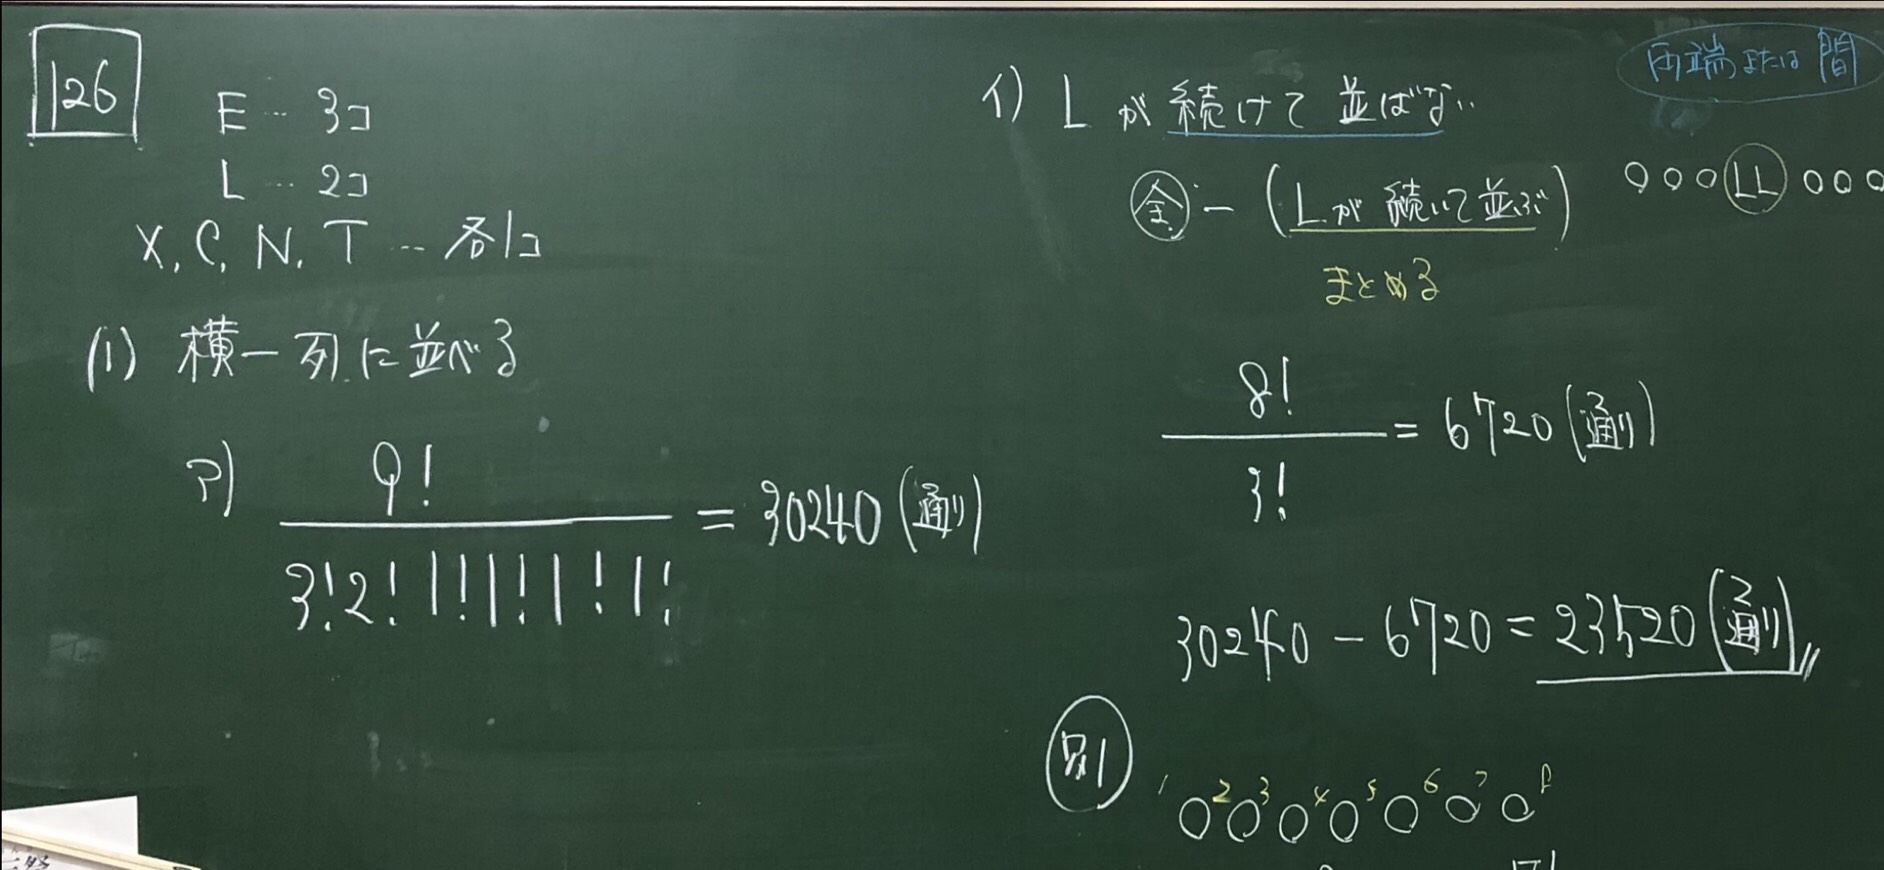 126
E … 3コ
L … 2コ
X, C, N, T … 各1コ
(1) 横一列に並べる
ア)
9!
3!2!1!1!1!1!
= 30240(通り)
イ) Lが続けて並ばない
両端または間
全 - (Lが続いて並ぶ)
○○○LL○○○
まとめる
8!
3!
= 6720(通り)
30240 - 6720 = 23520(通り)
別
1○2○3○4○5○6○7○8
7!